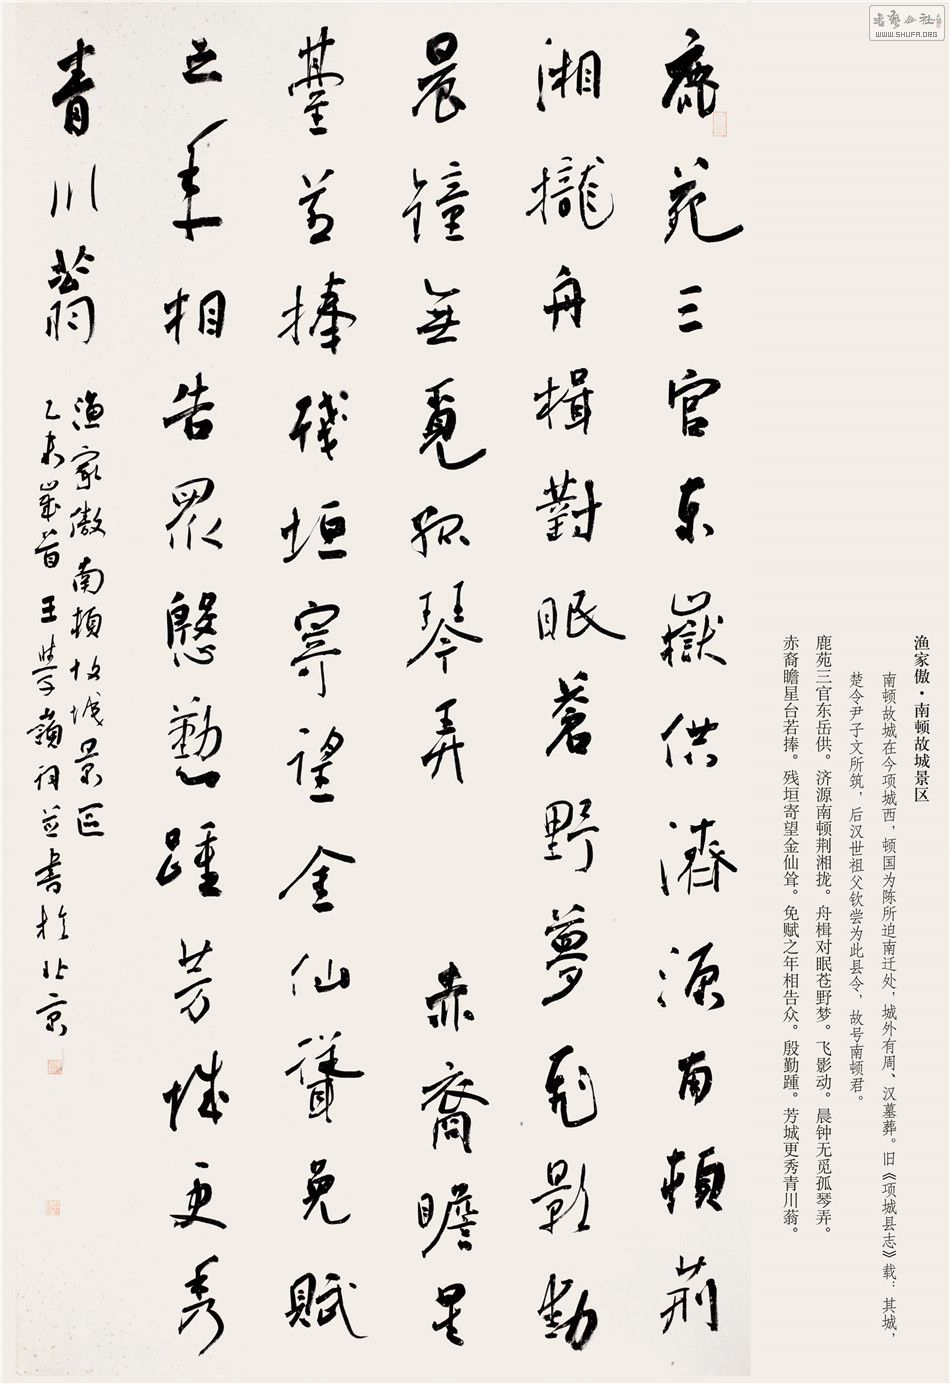 鹿苑三官东嶽供濟源南頓荊
湘攏舟楫對眠蒼野夢飛影動
晨鐘無覓孤琴弄 赤裔瞻星
臺若捧殘垣寄望金仙聳免賦
之年相告眾慇勤踵芳城更秀
青川翁
漁家傲南頓故城景区
乙未歲首王學嶺詞並書於北京
渔家傲·南顿故城景区
南顿故城在今项城西，顿国为陈所迫南迁处，城外有周、汉墓葬。旧《项城县志》载：其城，
楚令尹子文所筑，后汉世祖父钦尝为此县令，故号南顿君。
鹿苑三官东岳供。济源南顿荆湘拢。舟楫对眠苍野梦。飞影动。晨钟无觅孤琴弄。
赤裔瞻星台若捧。残垣寄望金仙耸。免赋之年相告众。殷勤踵。芳城更秀青川翁。
書藝公社
WWW.SHUFA.ORG